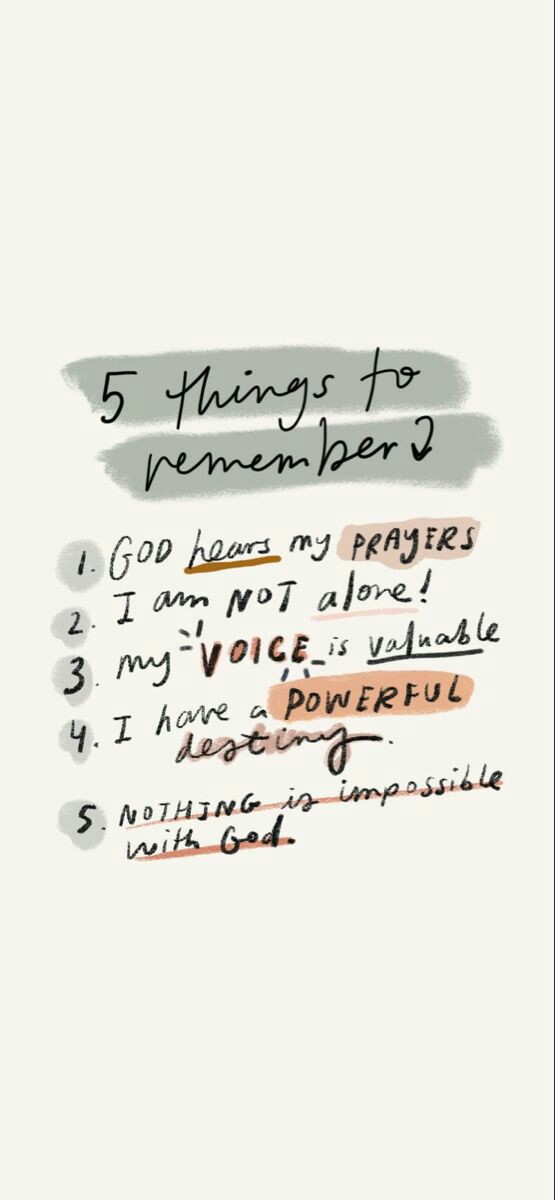 5 things to
remember
1. GOD hears my PRAYERS
2. I am NOT alone!
3. my VOICE is valuable
4. I have a POWERFUL
destiny.
5. NOTHING is impossible
with God.